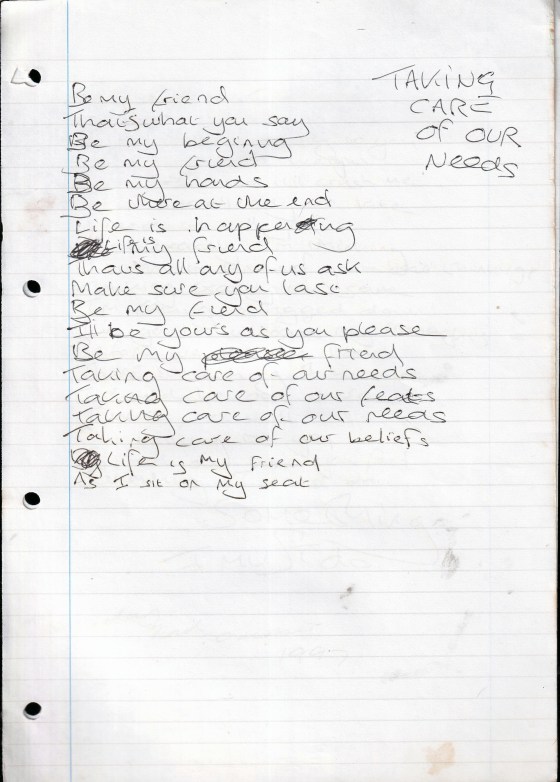 TAKING
CARE
OF OUR
NEEDS
Be my friend
That's what you say
Be my begining
Be my friend
Be my hands
Be there at the end
Life is happening
Life is my friend
Thats all any of us ask
Make sure you last
Be my friend
I'll be yours as you please
Be my friend
Taking care of our needs
Taking care of our
Taking care of our needs
Taking care of our beliefs
Life is my friend
As I sit on my seat